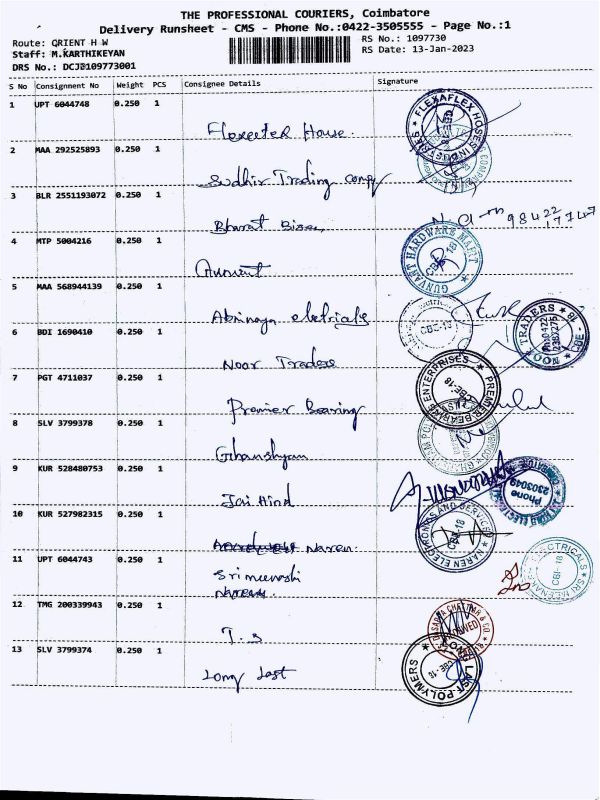 THE PROFESSIONAL COURIERS, Coimbatore
Delivery Runsheet - CMS - Phone No.:0422-3505555 - Page No.:1
Route: ORIENT H W
RS No.: 1097730
Staff: M.KARTHIKEYAN
RS Date: 13-Jan-2023
DRS No.: DCJB109773001
S No Consignment No Weight PCS Consignee Details Signature
1 UPT 6044748 0.250 1
FLEXAFLEX HOSES INDUSTRIES
2 MAA 292525893 0.250 1
Sudhir Trading compy
3 BLR 2551193072 0.250 1
Bharat
4 MTP 5004216 0.250 1
GUNVANT HARDWARE MART
CBE-18
5 MAA 568944139 0.250 1
Abinaya
CBE-18
6 BDI 1690410 0.250 1
Noor Traders
NOOR TRADERS
CBE - 18
7 PGT 4711037 0.250 1
Premier Bearing
PREMIER BEARING ENTERPRISES
CBE-18
8 SLV 3799378 0.250 1
Ghanshyam
9 KUR 528480753 0.250 1
Jai Hind
Phone
2303049
10 KUR 527982315 0.250 1
Naren
NAREN ELECTRONICS AND SERVICES
CBE-18
11 UPT 6044743 0.250 1
Srimeenashi
ELECTRICALS
CBE-18
12 TMG 200339943 0.250 1
T.S
13 SLV 3799374 0.250 1
Long Last
LONG LAST POLYMERS
CBE-18